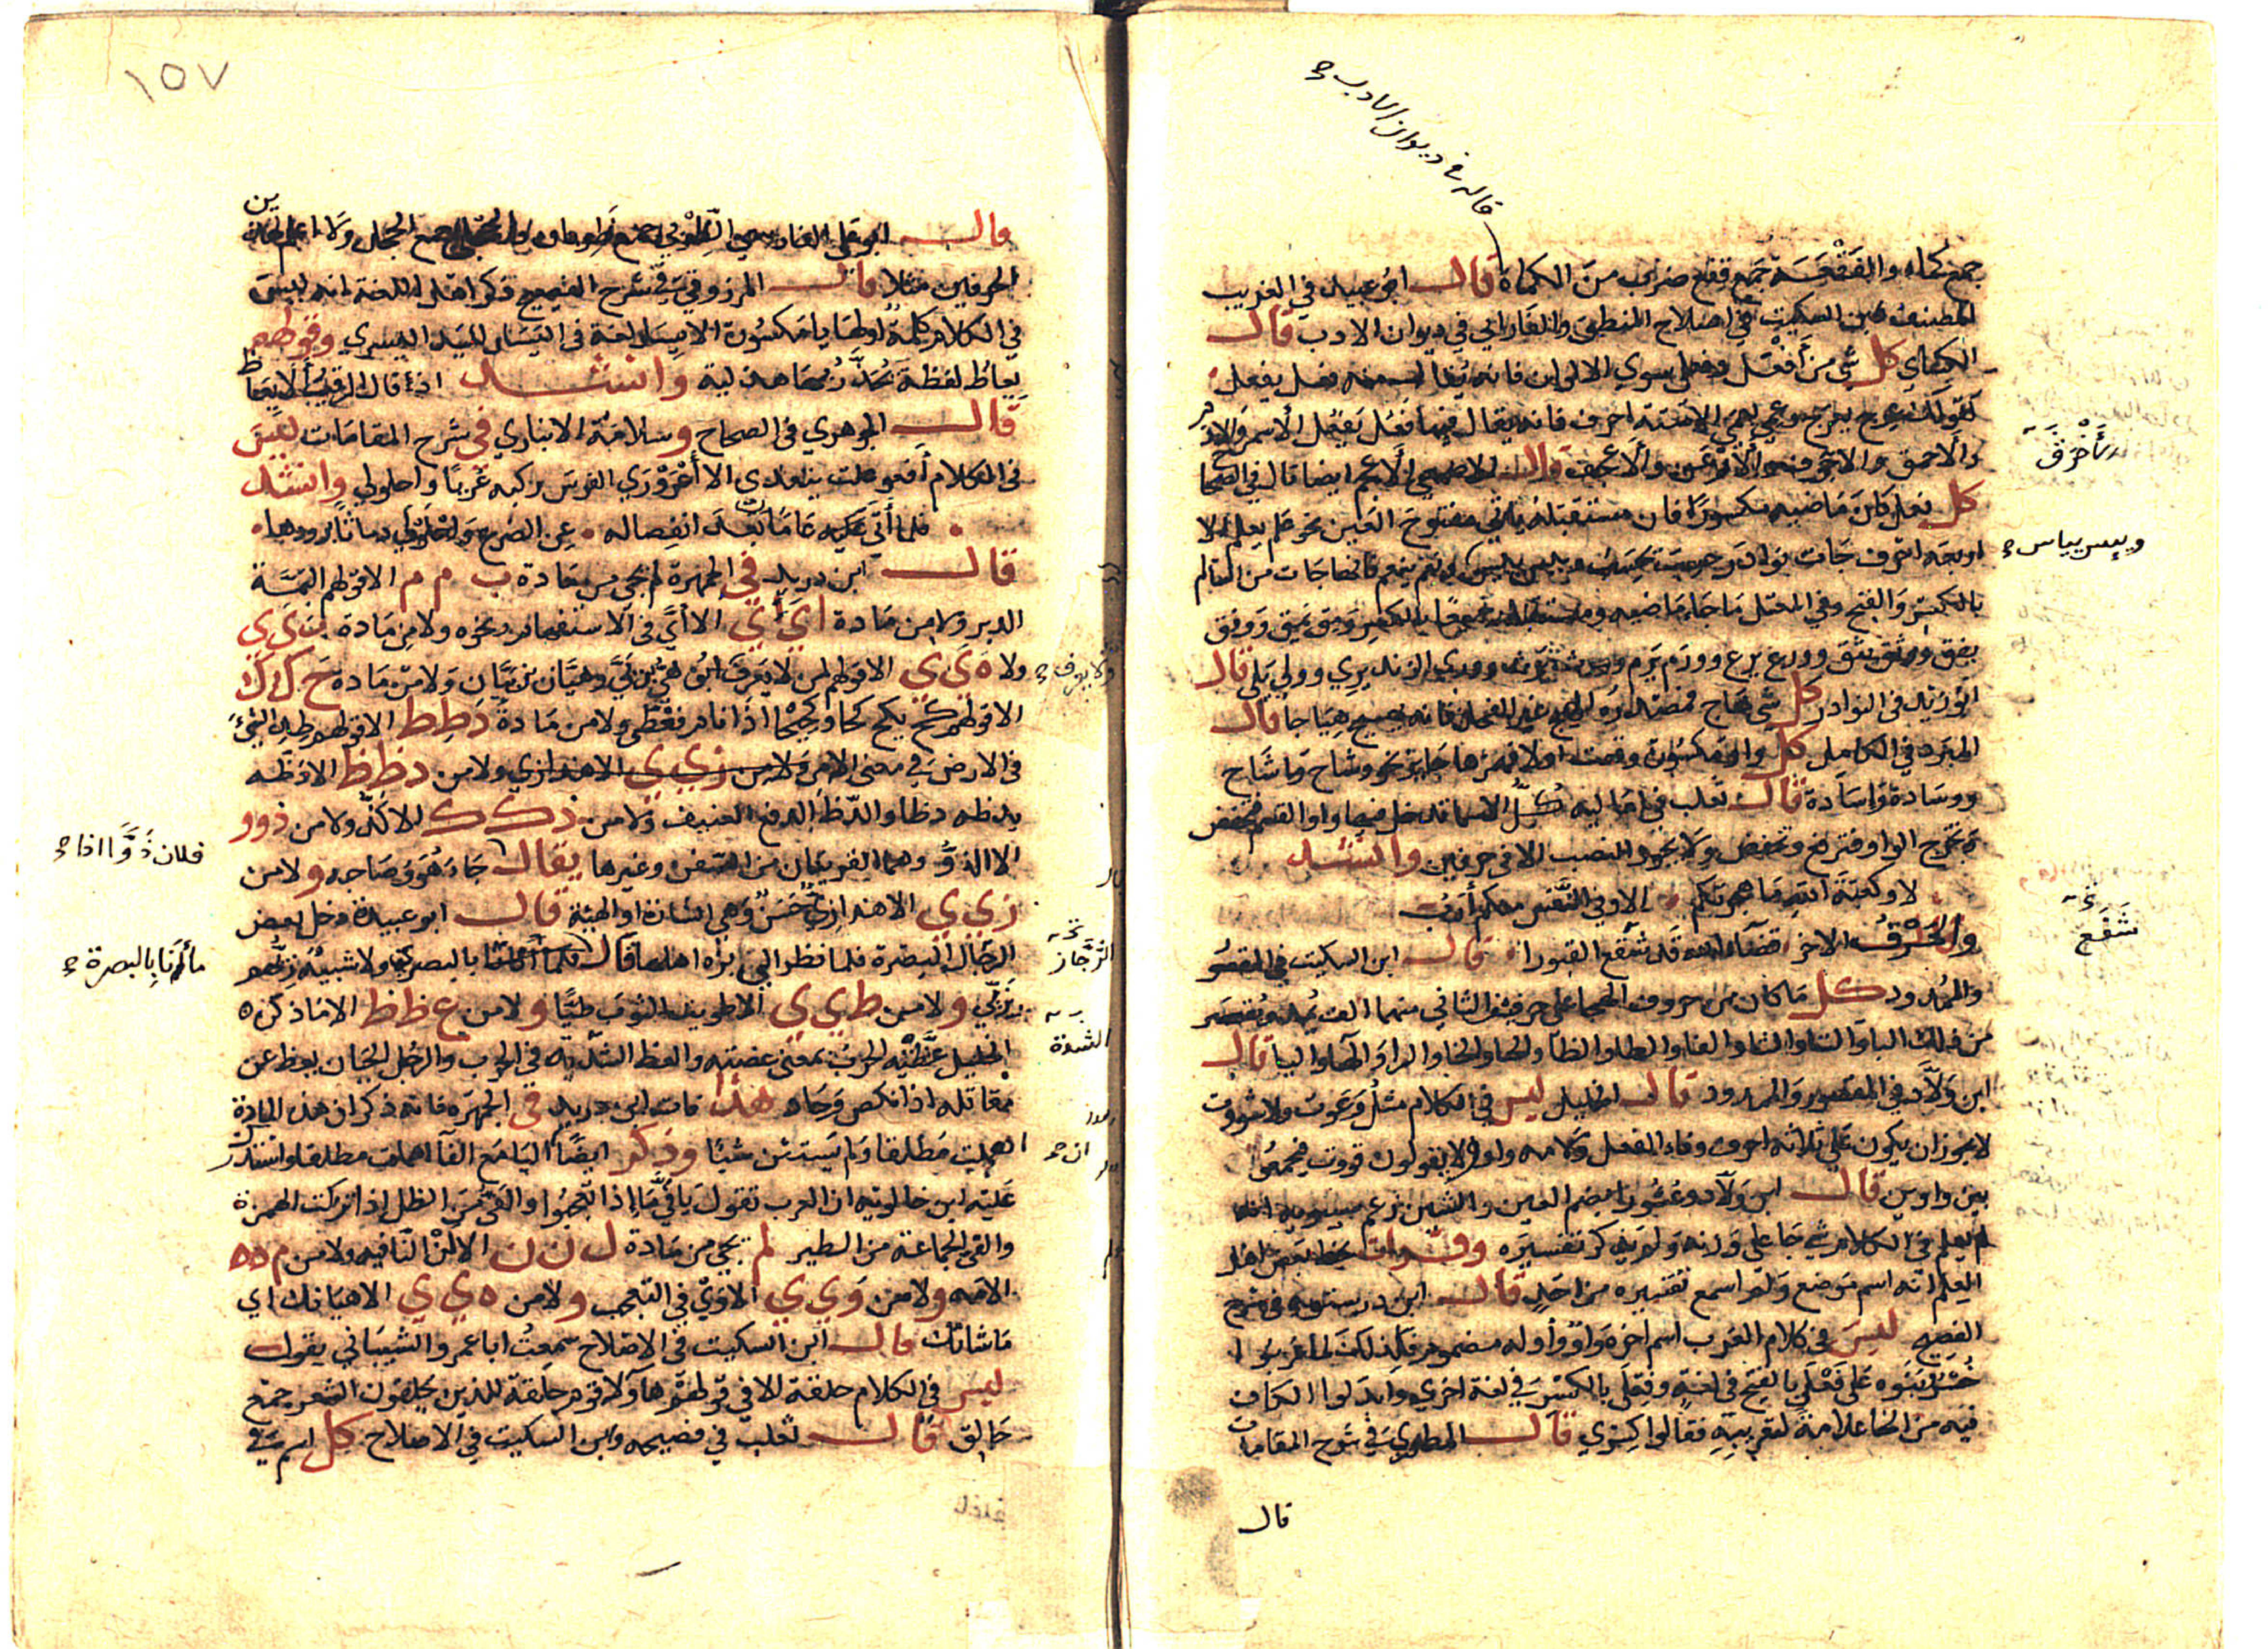 قاله في ديوان الادب
جمع كماه والفقعة جمع فقع ضرب من الكماة قال ابو عبيد في الغريب
المصنف وابن السكيت في اصلاح المنطق والفارابي في ديوان الادب قال
الكسائي كل شي من أفعل وفعلى سوي الالوان فانه يقال منه فعل يفعل
كقولك عرج يعرج وعمي يعمي الا ستة احرف فانه يقال فيها فعل يفعل الأسمر والادم
والاحمق والاخرق والارعن والاعجف وقال الاصمعي الاعجم ايضا قال في الصحاح
كل فعل كان ماضيه مكسورا فان مستقبله ياتي مفتوح العين نحو علم يعلم الا
اربعة احرف جات نوادر حسب يحسب ويبس ييبس ونعم ينعم فانها جات من السالم
بالكسر والفتح وفي المعتل ما جا ماضيه ومستقبله جميعا بالكسر ومق يمق ووفق
يفق ووثق يثق وورع يرع وورم يرم وورث يرث ووري الزند يري وولي يلي قال
ابو زيد في النوادر كل شي هاج فمصدره الهيج غير الفحل فانه يهيج هياجا قال
المبرد في الكامل كل واو مكسورة وقعت اولا فهمزها جايز نحو وشاح واشاح
ووسادة واسادة قال ثعلب في اماليه كل الاسما تدخل فيها واو القسم فتخفض
وتخرج الواو فترفع وتخفض ولا يجوز النصب الا في حرفين وانشد
لا وكعبة الله ما هجرتكم الا وفي النفس منكم أرب
والحرف الاخر قضآء الله قد شفع القبورا قال ابن السكيت في المقصور
والممدود كل ما كان من حروف الهجا على حرفين الثاني منهما الف يمد ويقصر
من ذلك البا والتا والثا والفا والطا والظآ والحا والخا والرا والهآ واليا قال
ابن ولاد في المقصور والممدود قال الخليل ليس في الكلام مثل وعوت ولا شووت
لا يجوز ان يكون على ثلاثة احرف وفاء الفعل ولامه واو الا يقولون قووت فيجمعوا
بين واوين قال ابن ولاد وعشورا بضم العين والشين زعم سيبويه انه
لم يعلم في الكلام شي جا على وزنه ولم يذكر تفسيره وقرات بخط بعض اهل
العلم انه اسم موضع ولم اسمع تفسيره من احد قال ابن درستويه في شرح
الفصيح ليس في كلام العرب اسم اخره واو وأوله مضموم فلذلك لما عربوا
خسرو بنوه على فعلى بالفتح في لغة وفعلى بالكسر في لغة اخري وابدلوا الكاف
فيه من الخا علامة لتعريبه فقالوا كسري قال المطرزي في شرح المقامات
قال
والأخرق
ويبس يباس
شفع
١٥٧
قال ابو علي الفارسي الظربى جمع ظربان والحجلى جمع الحجل ولا اعلم لهذين
الحرفين مثلا قال المرزوقي في شرح الفصيح ذكر اهل اللغة انه ليس
في الكلام كلمة اولها يا مكسورة الا يسار لغة في اليسار لليد اليسري وقولهم
يعاظ لفظة يحذر بها هذلية وانشد اذا قال الرقيب ألا يعاظ
قال الجوهري في الصحاح وسلامة الانباري في شرح المقامات ليس
في الكلام أفعوعلت يتعدي الا أعروري الفرس ركبه عريا واحلولي وانشد
فلما أتي عليه عامان بعد انفصاله عن الضرع واحلولي دماثا يرودها
قال ابن دريد في الجمهرة لم يجي من مادة ب م م الا قولهم البمة
الدبر ولا من مادة اي ي الا أيَّ في الاستفهام ونحوه ولا من مادة ب ي ي
ولا ه ي ي الا قولهم لمن لا يعرف ابوه هي بن بي وهيان بن بيان ولا من مادة ح ك ك
في الارض في معنى الامر ولا من زي ي الا هذا زي ولا من د ظ ظ الا دظه
يدظه دظا والدظ الدفع العنيف ولا من ذ ك ك الا كذ ولا من ذ و و
الا الذو وهما القرينان من السفن وغيرها يقال جاء هو وصاحبه ولا من
زي ي الا هذا زي حسن وهي الشارة او الهيئة قال ابو عبيدة دخل بعض
الرجال البصرة فلما نظر الى بزه اهلها قال
ولا من ط ي ي الا طويت الثوب طيا ولا من ع ظ ظ الا ما ذكره
الخليل عظته الحرب بمعنى عضته والعظ الشدة في الحرب والرجل الجبان يعظ عن
مقاتله اذا نكص وحاد هذا فات ابن دريد في الجمهرة فانه ذكر ان هذه المادة
اهملت مطلقا ولم يستثن شيئا وذكر ايضا ان اليا مع الفآ اهملت مطلقا واستدرك
عليه ابن خالويه ان العرب تقول يا في ما إذا تعجبوا والفي من الظل اذا تركت الهمزة
والفي الجماعة من الطير لم يجي من مادة ل ن ن الا لن النافيه ولا من م ه ه
الا مه ولا من و ي ي الا وي في التعجب ولا من ه ي ي الا هيانك اي
ما شانك قال ابن السكيت في الاصلاح سمعت ابا عمرو الشيباني يقول
ليس في الكلام حلقة الا في قولهم هآولا قوم حلقة للذين يحلقون الشعر جمع
حالق قال ثعلب في فصيحه وابن السكيت في الاصلاح كل اسم في
ولا يعرف
فلان ذوا اذا
الشدة
ان